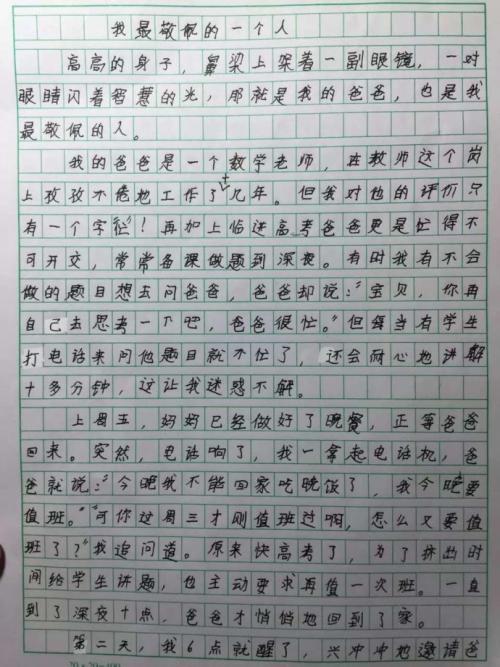 我最敬佩的一个人
高高的身子，鼻梁上架着一副眼镜，一对
眼睛闪着智慧的光，那就是我的爸爸，也是我
最敬佩的人。
我的爸爸是一个数学老师，在教师这个岗
上孜孜不倦地工作了十几年。但我对他的评价只
有一个字忙！再加上临近高考爸爸更是忙得不
可开交，常常备课做题到深夜。有时我有不会
做的题目想去问爸爸，爸爸却说：“宝贝，你再
自己去思考一下吧，爸爸很忙。”但每当有学生
打电话来问他题目就不忙了，还会耐心地讲解
十多分钟，这让我迷惑不解。
上周五，妈妈已经做好了晚餐，正等爸爸
回来。突然，电话响了，我一拿起电话机，爸
爸就说：“今晚我不能回家吃晚饭了，我今晚要
值班。”“可你过周三才刚值班过啊，怎么又要值
班了？”我追问道。原来快高考了，为了挤出时
间给学生讲题，也主动要求再值一次班。一直
到了深夜十点，爸爸才悄悄地回到了家。
第二天，我6点就醒了，兴冲冲地邀请爸
20×20=400